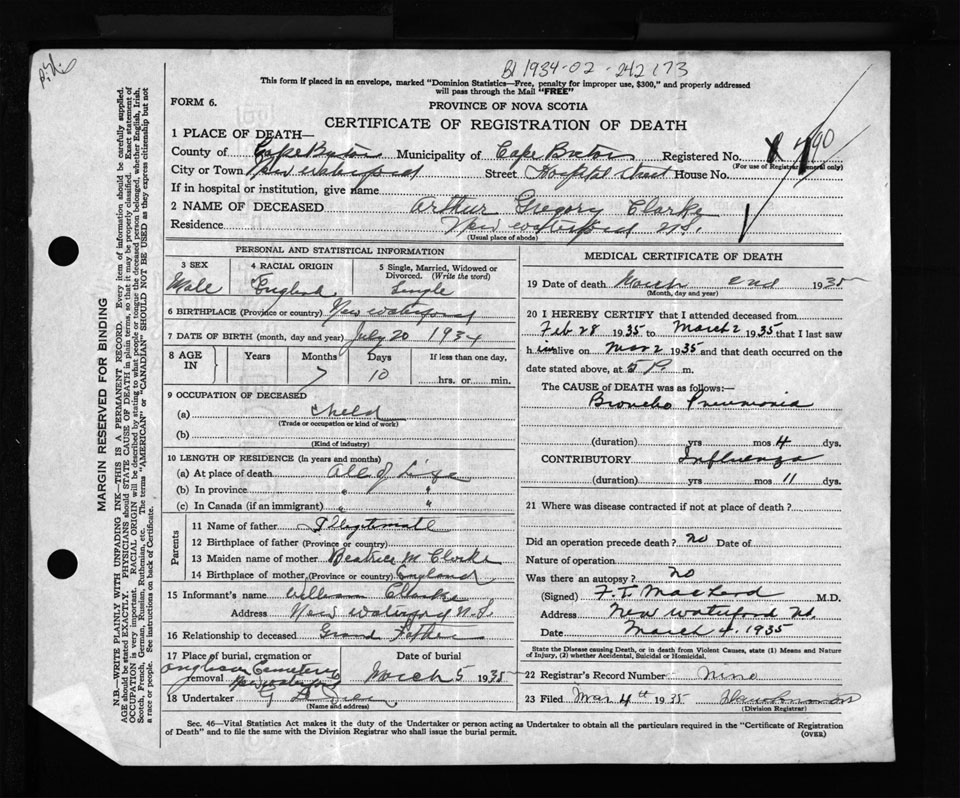 B 1934-02-242173
This form if placed in an envelope, marked "Dominion Statistics—Free, penalty for improper use, $300," and properly addressed
will pass through the Mail "FREE"
FORM 6.
PROVINCE OF NOVA SCOTIA
CERTIFICATE OF REGISTRATION OF DEATH
1 PLACE OF DEATH—
County of Cape Breton Municipality of Cape Breton Registered No.
(For use of Registrar General only)
City or Town New Waterford Street Hospital Street House No.
If in hospital or institution, give name
2 NAME OF DECEASED Arthur Gregory Clarke
Residence New Waterford N.S.
(Usual place of abode)
MARGIN RESERVED FOR BINDING
N.B.—WRITE PLAINLY WITH UNFADING INK—THIS IS A PERMANENT RECORD. Every item of information should be carefully supplied.
AGE should be stated EXACTLY. PHYSICIANS should STATE CAUSE OF DEATH in plain terms, so that it may be properly classified. Exact statement of
OCCUPATION is very important. RACIAL ORIGIN will be described by stating to what people or tongue the deceased person belonged, whether English, Irish,
Scotch, French, German, Russian, Ruthenian, etc. The terms "AMERICAN" or "CANADIAN" SHOULD NOT BE USED as they express citizenship but not
a race or people. See instructions on back of Certificate.
PERSONAL AND STATISTICAL INFORMATION
3 SEX 4 RACIAL ORIGIN 5 Single, Married, Widowed or
Divorced. (Write the word)
Male English Single
6 BIRTHPLACE (Province or country) New Waterford
7 DATE OF BIRTH (month, day and year) July 20 1934
8 AGE IN Years Months Days If less than one day,
7 10 hrs. or min.
9 OCCUPATION OF DECEASED
(a) Child
(Trade or occupation or kind of work)
(b)
(Kind of industry)
10 LENGTH OF RESIDENCE (in years and months)
(a) At place of death All of Life
(b) In province " "
(c) In Canada (if an immigrant) " "
Parents
11 Name of father Illegitimate
12 Birthplace of father (Province or country)
13 Maiden name of mother Beatrice M. Clarke
14 Birthplace of mother (Province or country) England
15 Informant's name William Clarke
Address New Waterford N.S.
16 Relationship to deceased Grand Father
17 Place of burial, cremation or removal Anglican Cemetery New Waterford
Date of burial March 5 1935
18 Undertaker G
(Name and address)
MEDICAL CERTIFICATE OF DEATH
19 Date of death March 2nd 1935
(Month, day and year)
20 I HEREBY CERTIFY that I attended deceased from
Feb 28 1935 to March 2 1935 that I last saw
h im alive on Mar 2 1935 and that death occurred on the
date stated above, at 5 P. m.
The CAUSE OF DEATH was as follows:—
Broncho Pneumonia
(duration) yrs mos 4 dys.
CONTRIBUTORY Influenza
(duration) yrs mos 11 dys.
21 Where was disease contracted if not at place of death?
Did an operation precede death? no Date of
Nature of operation
Was there an autopsy? no
(Signed) F. T. MacLeod M.D.
Address New Waterford N.S.
Date March 4. 1935
State the Disease causing Death, or in death from Violent Causes, state (1) Means and Nature
of Injury, (2) whether Accidental, Suicidal or Homicidal.
22 Registrar's Record Number Nine
23 Filed Mar 4th 1935
(Division Registrar)
Sec. 46—Vital Statistics Act makes it the duty of the Undertaker or person acting as Undertaker to obtain all the particulars required in the "Certificate of Registration
of Death" and to file the same with the Division Registrar who shall issue the burial permit.
(OVER)